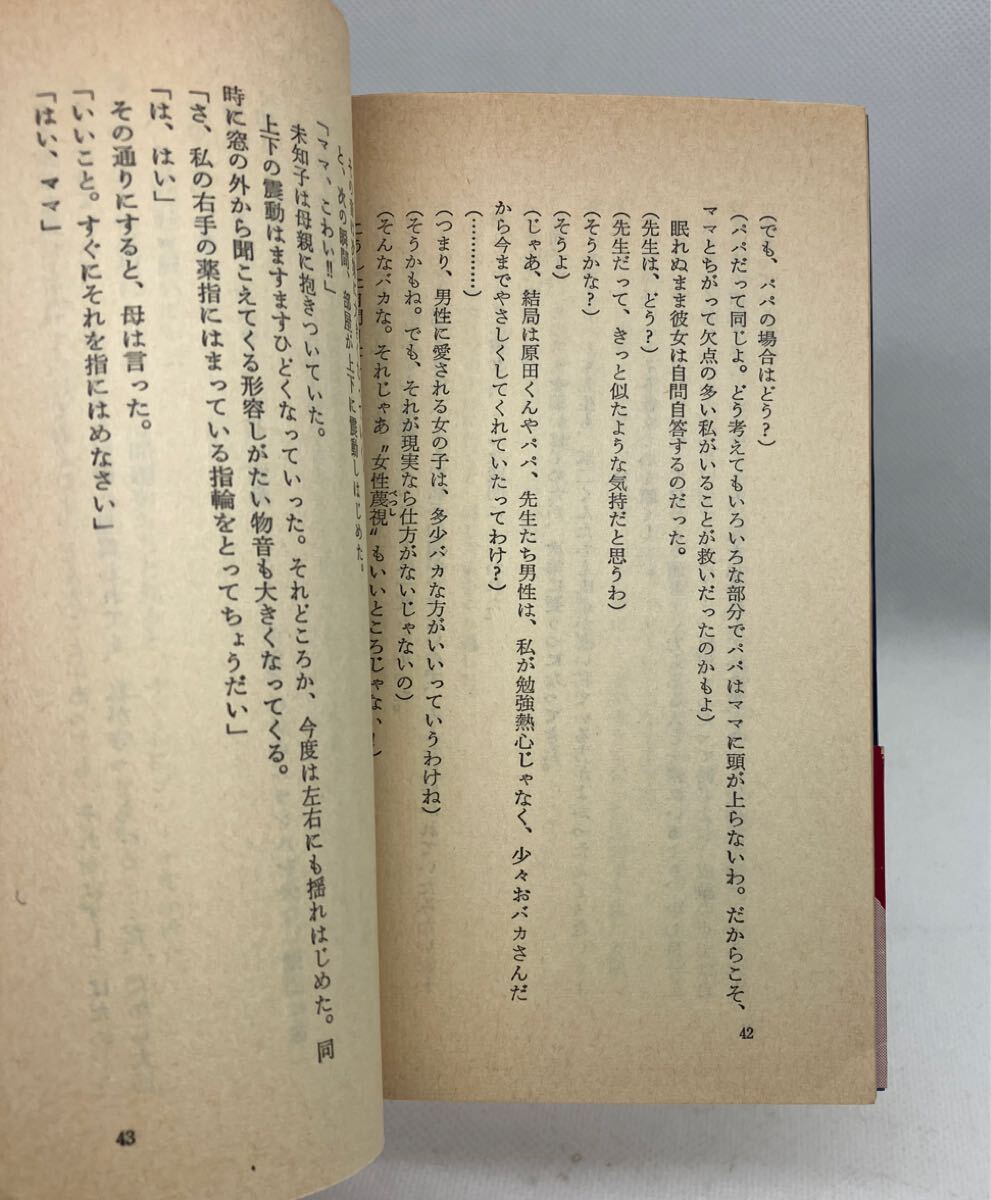 (でも、パパの場合はどう?)
(パパだって同じよ。どう考えてもいろいろな部分でパパはママに頭が上らないわ。だからこそ、
ママとちがって欠点の多い私がいることが救いだったのかもよ)
眠れぬまま彼女は自問自答するのだった。
(先生は、どう?)
(先生だって、きっと似たような気持だと思うわ)
(そうかな?)
(そうよ)
(じゃあ、結局は原田くんやパパ、先生たち男性は、私が勉強熱心じゃなく、少々おバカさんだ
から今までやさしくしてくれていたってわけ?)
(…………)
(つまり、男性に愛される女の子は、多少バカな方がいいっていうわけね)
(そうかもね。でも、それが現実なら仕方がないじゃないの)
(そんなバカな。それじゃあ〝女性蔑視〟もいいところじゃな
べっし
42
と、次の瞬間、部屋が上下に震動しはじめた。
「ママ、こわい!!」
未知子は母親に抱きついていた。
上下の震動はますますひどくなっていった。それどころか、今度は左右にも揺れはじめた。同
時に窓の外から聞こえてくる形容しがたい物音も大きくなってくる。
「さ、私の右手の薬指にはまっている指輪をとってちょうだい」
「は、はい」
その通りにすると、母は言った。
「いいこと。すぐにそれを指にはめなさい」
「はい、ママ」
43